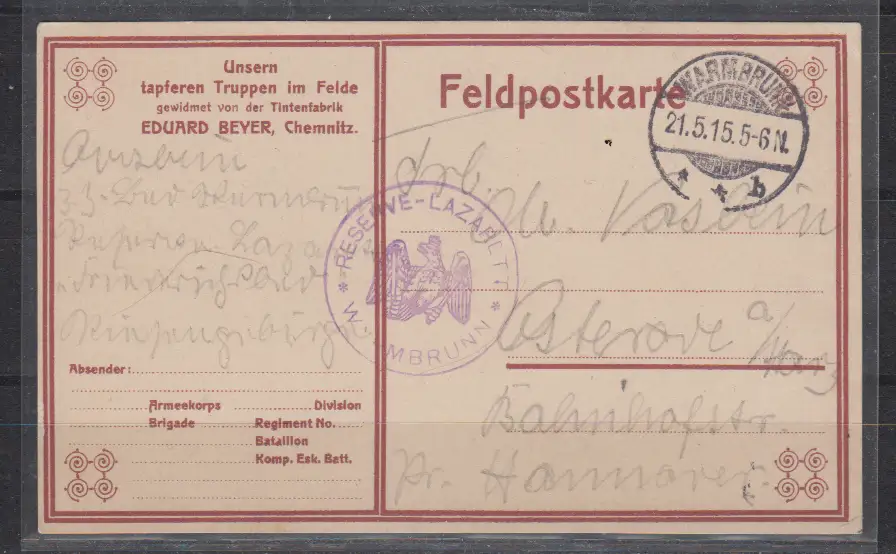 Unsern
tapferen Truppen im Felde
gewidmet von der Tintenfabrik
EDUARD BEYER, Chemnitz.
z. Z. Bad Warmbrunn
Reserve Lazarett
Riesengebirge
Absender:
Armeekorps Division
Brigade Regiment No.
Bataillon
Komp. Esk. Batt.
Feldpostkarte
WARMBRUNN
21.5.15.5-6N.
* * b
* RESERVE-LAZARETT *
WARMBRUNN
Osterode a/
Harz
Bahnhofstr.
Pr. Hannover.